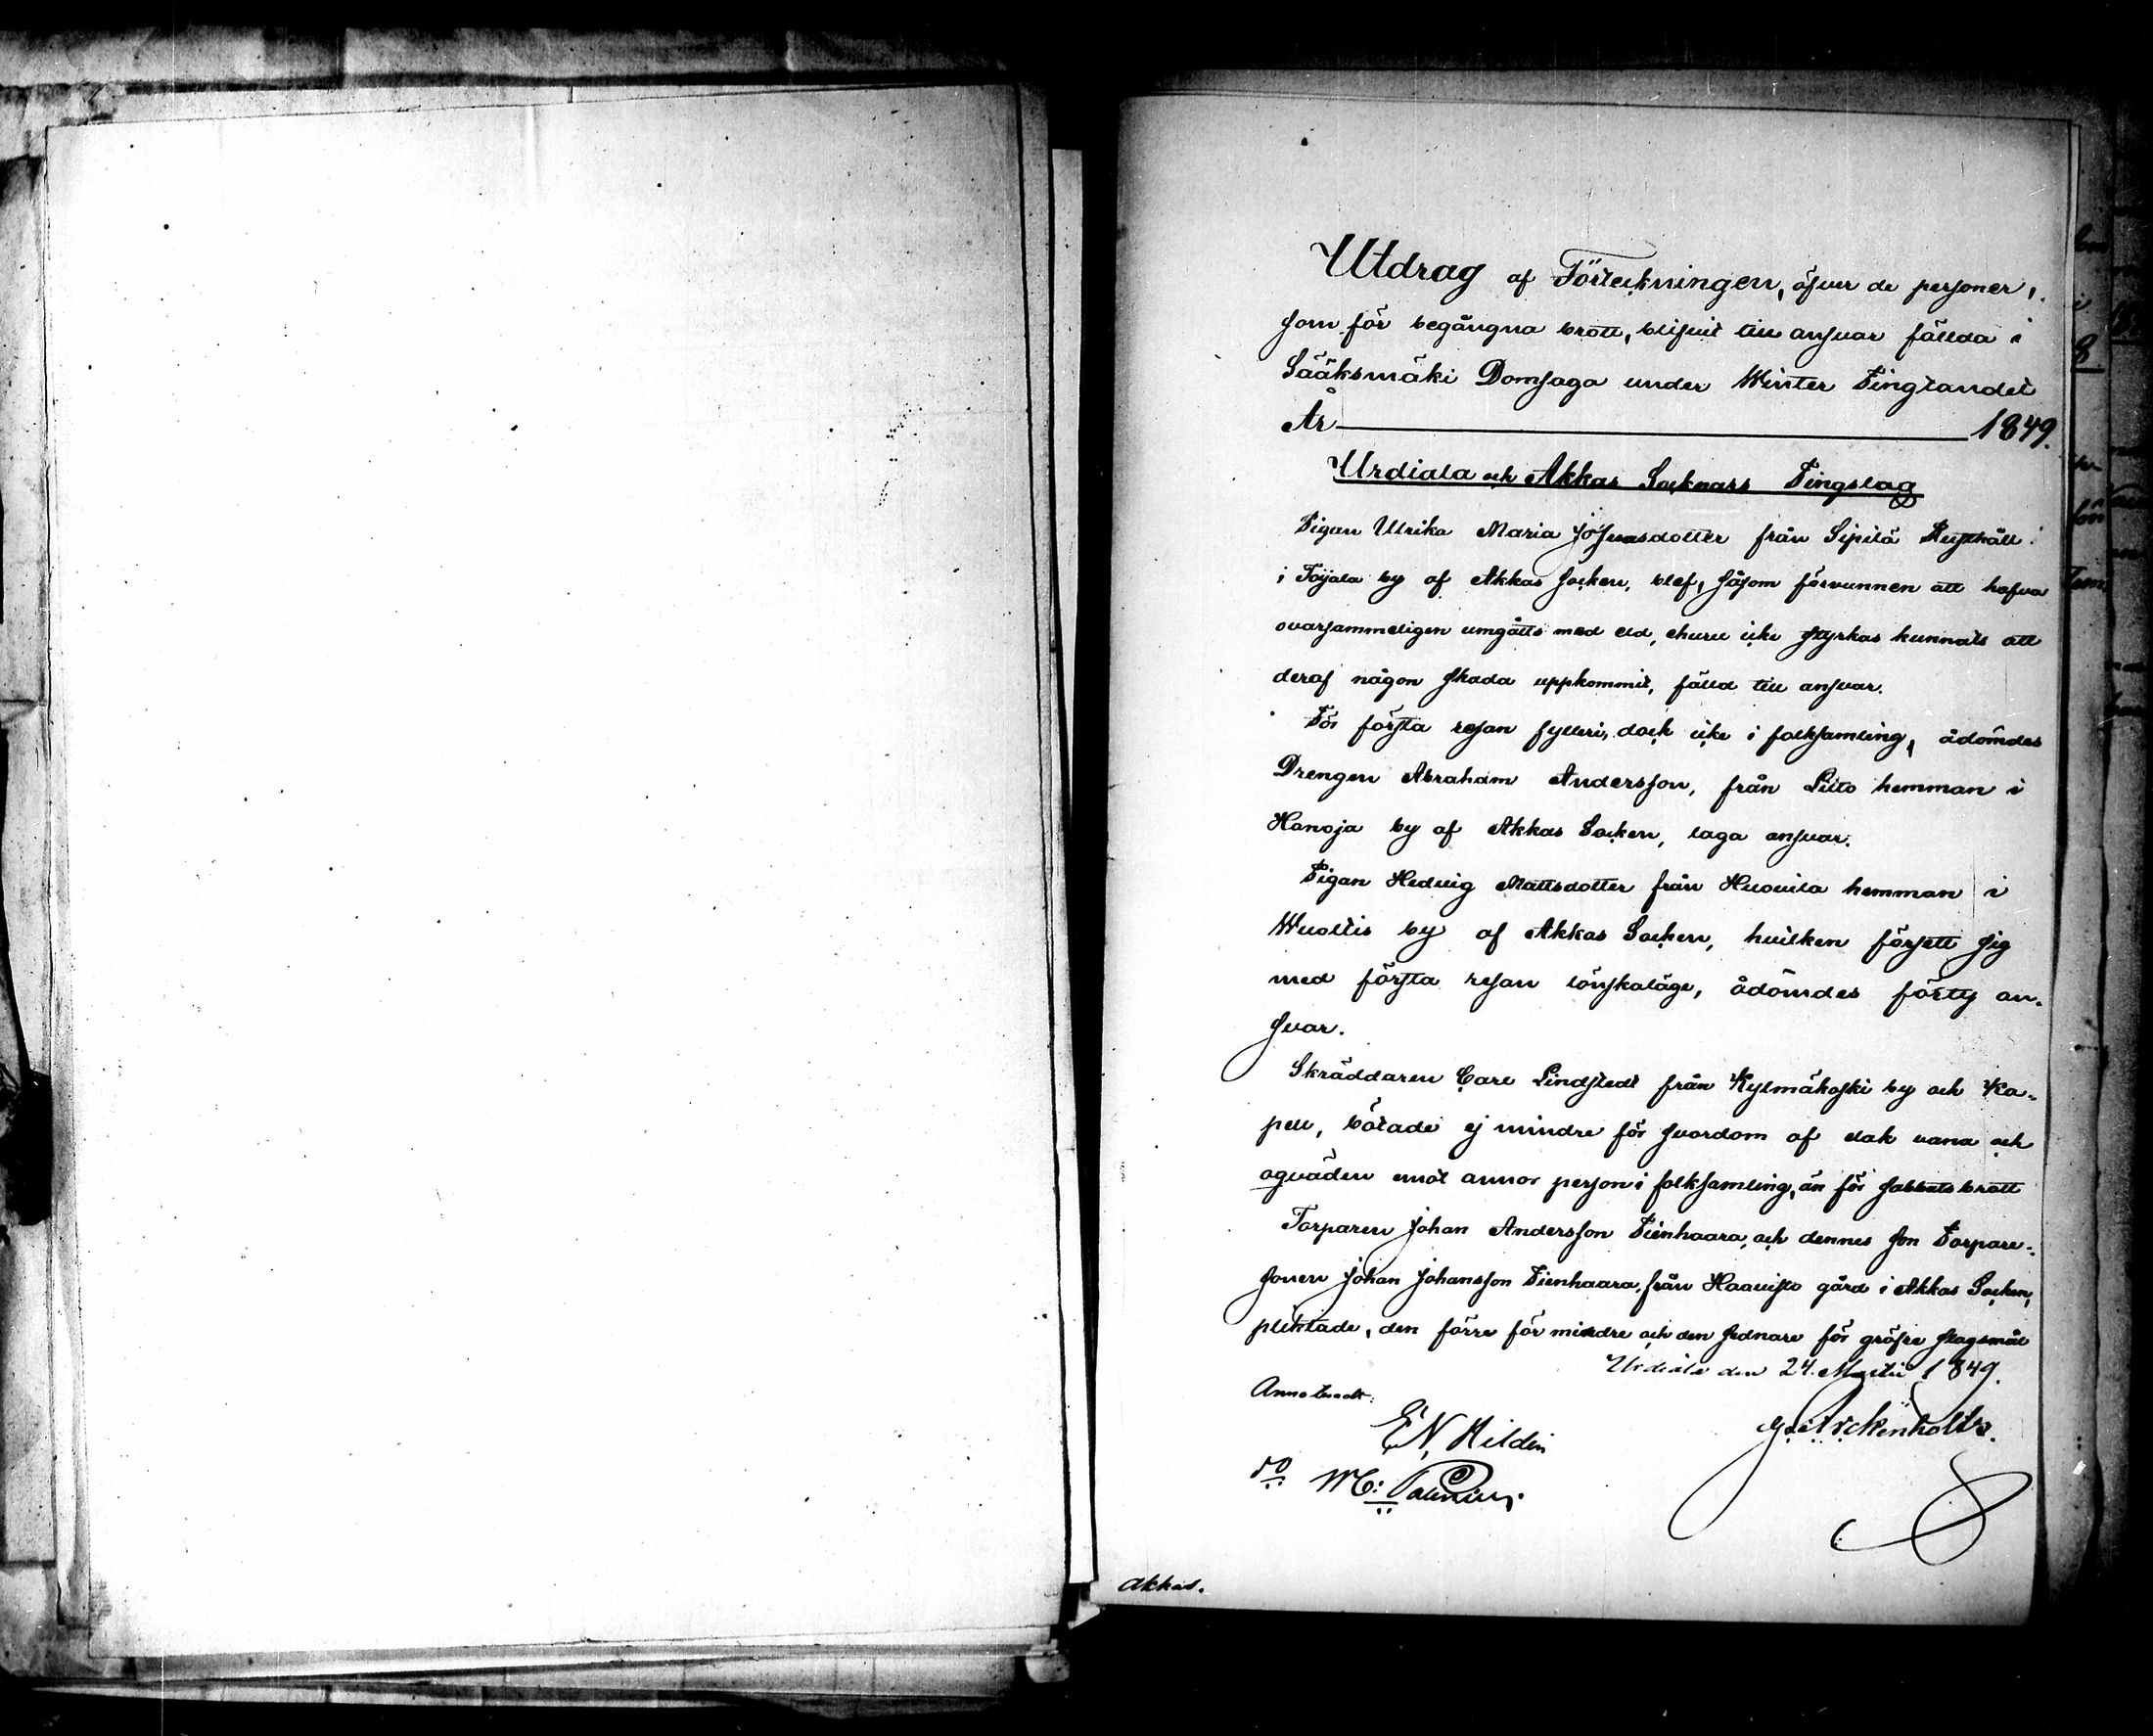 Utdrag af Förteckningen, öfver de personer,
som för begångna brott, blifvit till ansvar fällda i
Sääksmäki Domsaga under Winter Tingtandet
År 1849.
Urdiala och Akkas Socknars Tingslag
Pigan Ulrika Maria Josuasdotter från Sipilä Rusthåll
i Toijala by af Akkas Socken, blef, såsom förvunnen att hafva
ovarsammeligen umgåtts med eld, ehuru icke styrkas kunnats att
deraf någon skada uppkommit, fälld till ansvar.
För första resan fylleri, dock icke i folksamling, ådömdes
Drengen Abraham Andersson, från Litto hemman i
Hanoja by af Akkas Socken, laga ansvar.
Pigan Hedvig Mattsdotter från Huovila hemman i
Wuoltis by af Akkas Socken, hvilken försett sig
med första resan lönskaläge, ådömdes förty an-
svar.
Skräddaren Carl Lindstedt från Kylmäkoski by och Ka-
pell, bötade ej mindre för svordom af elak vana och
oqväden emot annor person i folksamling, än för sabbatsbrott
Torparen Johan Andersson Tienhaara, och dennes son Torpare-
sonen Johan Johansson Tienhaara, från Haavisto gård i Akkas Socken,
pliktade, den förre för mindre och den sednare för gröfre slagsmål
Urdiala den 24. Martii 1849.
Annoteradt:
E N Hildén
G. Arckenholtz.
do M: Palenius
Akkas.